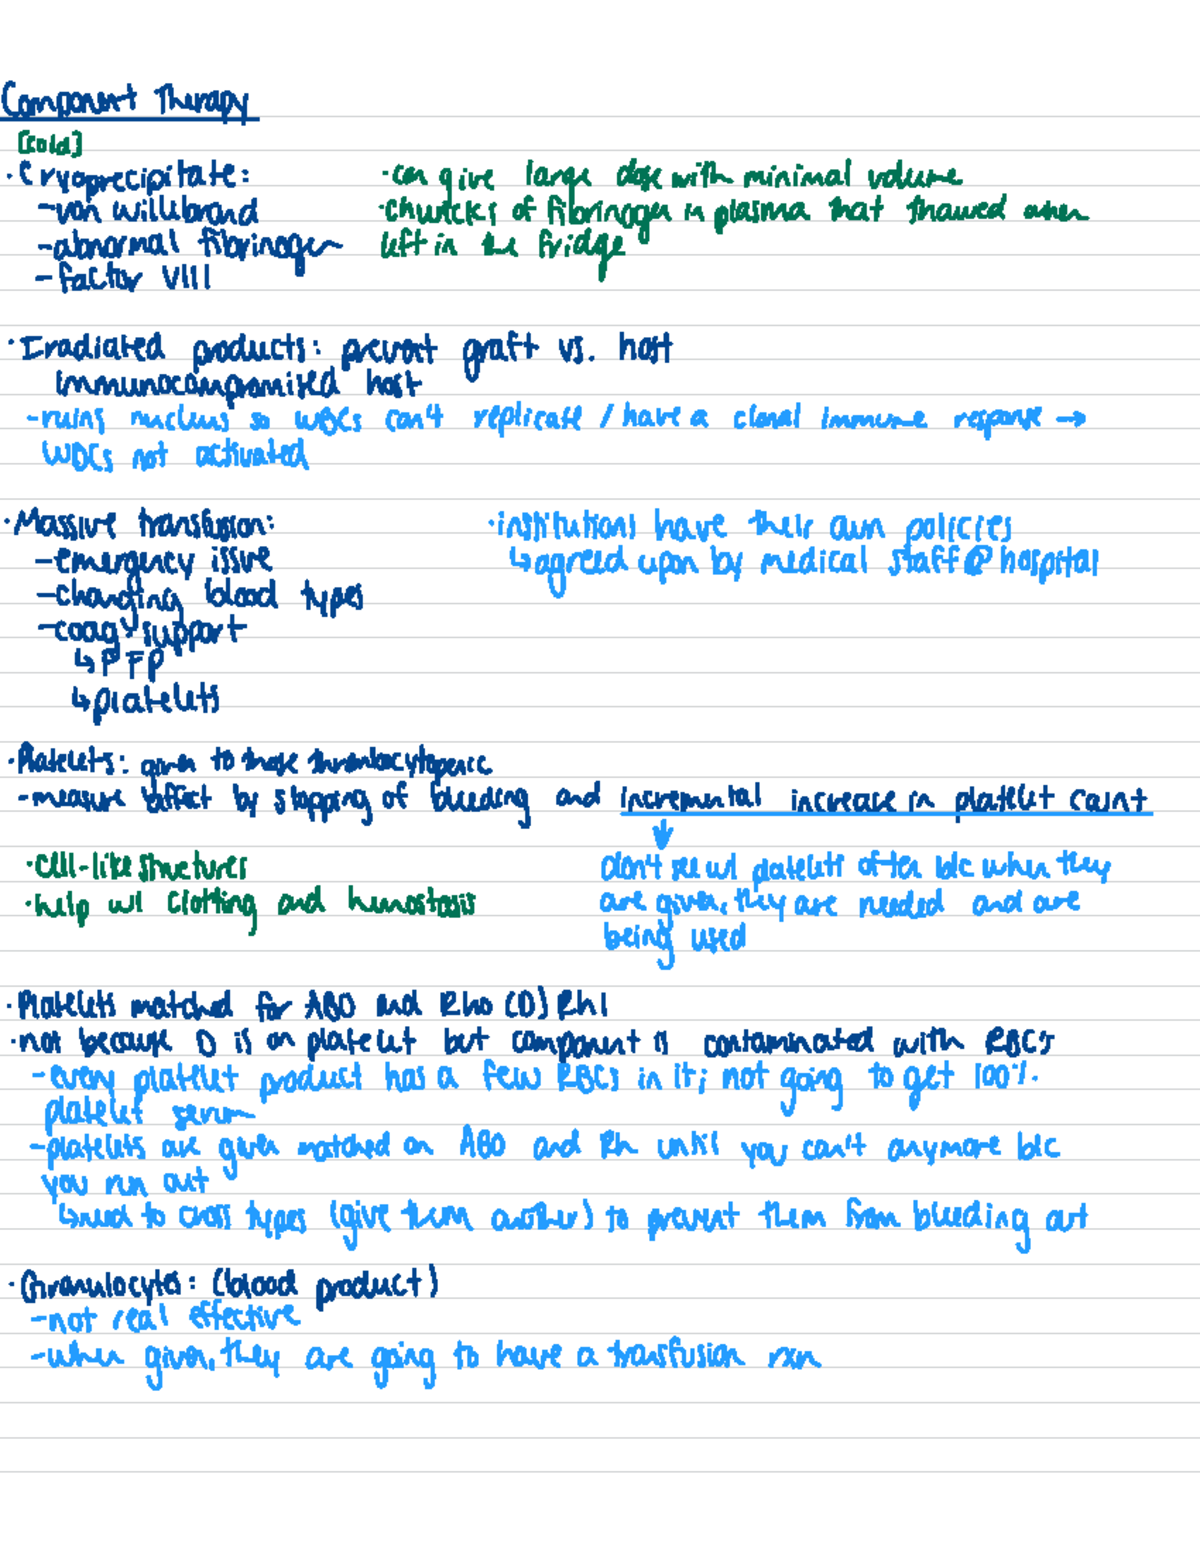 Component Therapy
[cold]
· Cryoprecipitate:
-von willebrand
-abnormal fibrinogen
- factor VIII
·can give large dose with minimal volume
·chuncks of fibrinogen in plasma that thawed when
left in the fridge
· Irradiated products: prevent graft vs. host
immunocompromised host
-ruins nucleus so WBCs can't replicate / have a clonal immune response →
WBCs not activated
·Massive transfusion:
-emergency issue
-changing blood types
-coag support
↳FFP
↳platelets
·institutions have their own policies
↳agreed upon by medical staff @ hospital
·Platelets: given to those thrombocytopenic
-measure effect by stopping of bleeding and incremental increase in platelet count
·cell-like structures
·help w/ clotting and hemostasis
don't see w/ platelets often b/c when they
are given, they are needed and are
being used
·Platelets matched for ABO and Rho (D) Rh1
·not because D is on platelet but component is contaminated with RBCs
-every platelet product has a few RBCs in it; not going to get 100%
platelet serum
-platelets are given matched on ABO and Rh until you can't anymore b/c
you run out
↳need to cross types (give them another) to prevent them from bleeding out
·Granulocytes: (blood product)
-not real effective
-when given, they are going to have a transfusion rxn